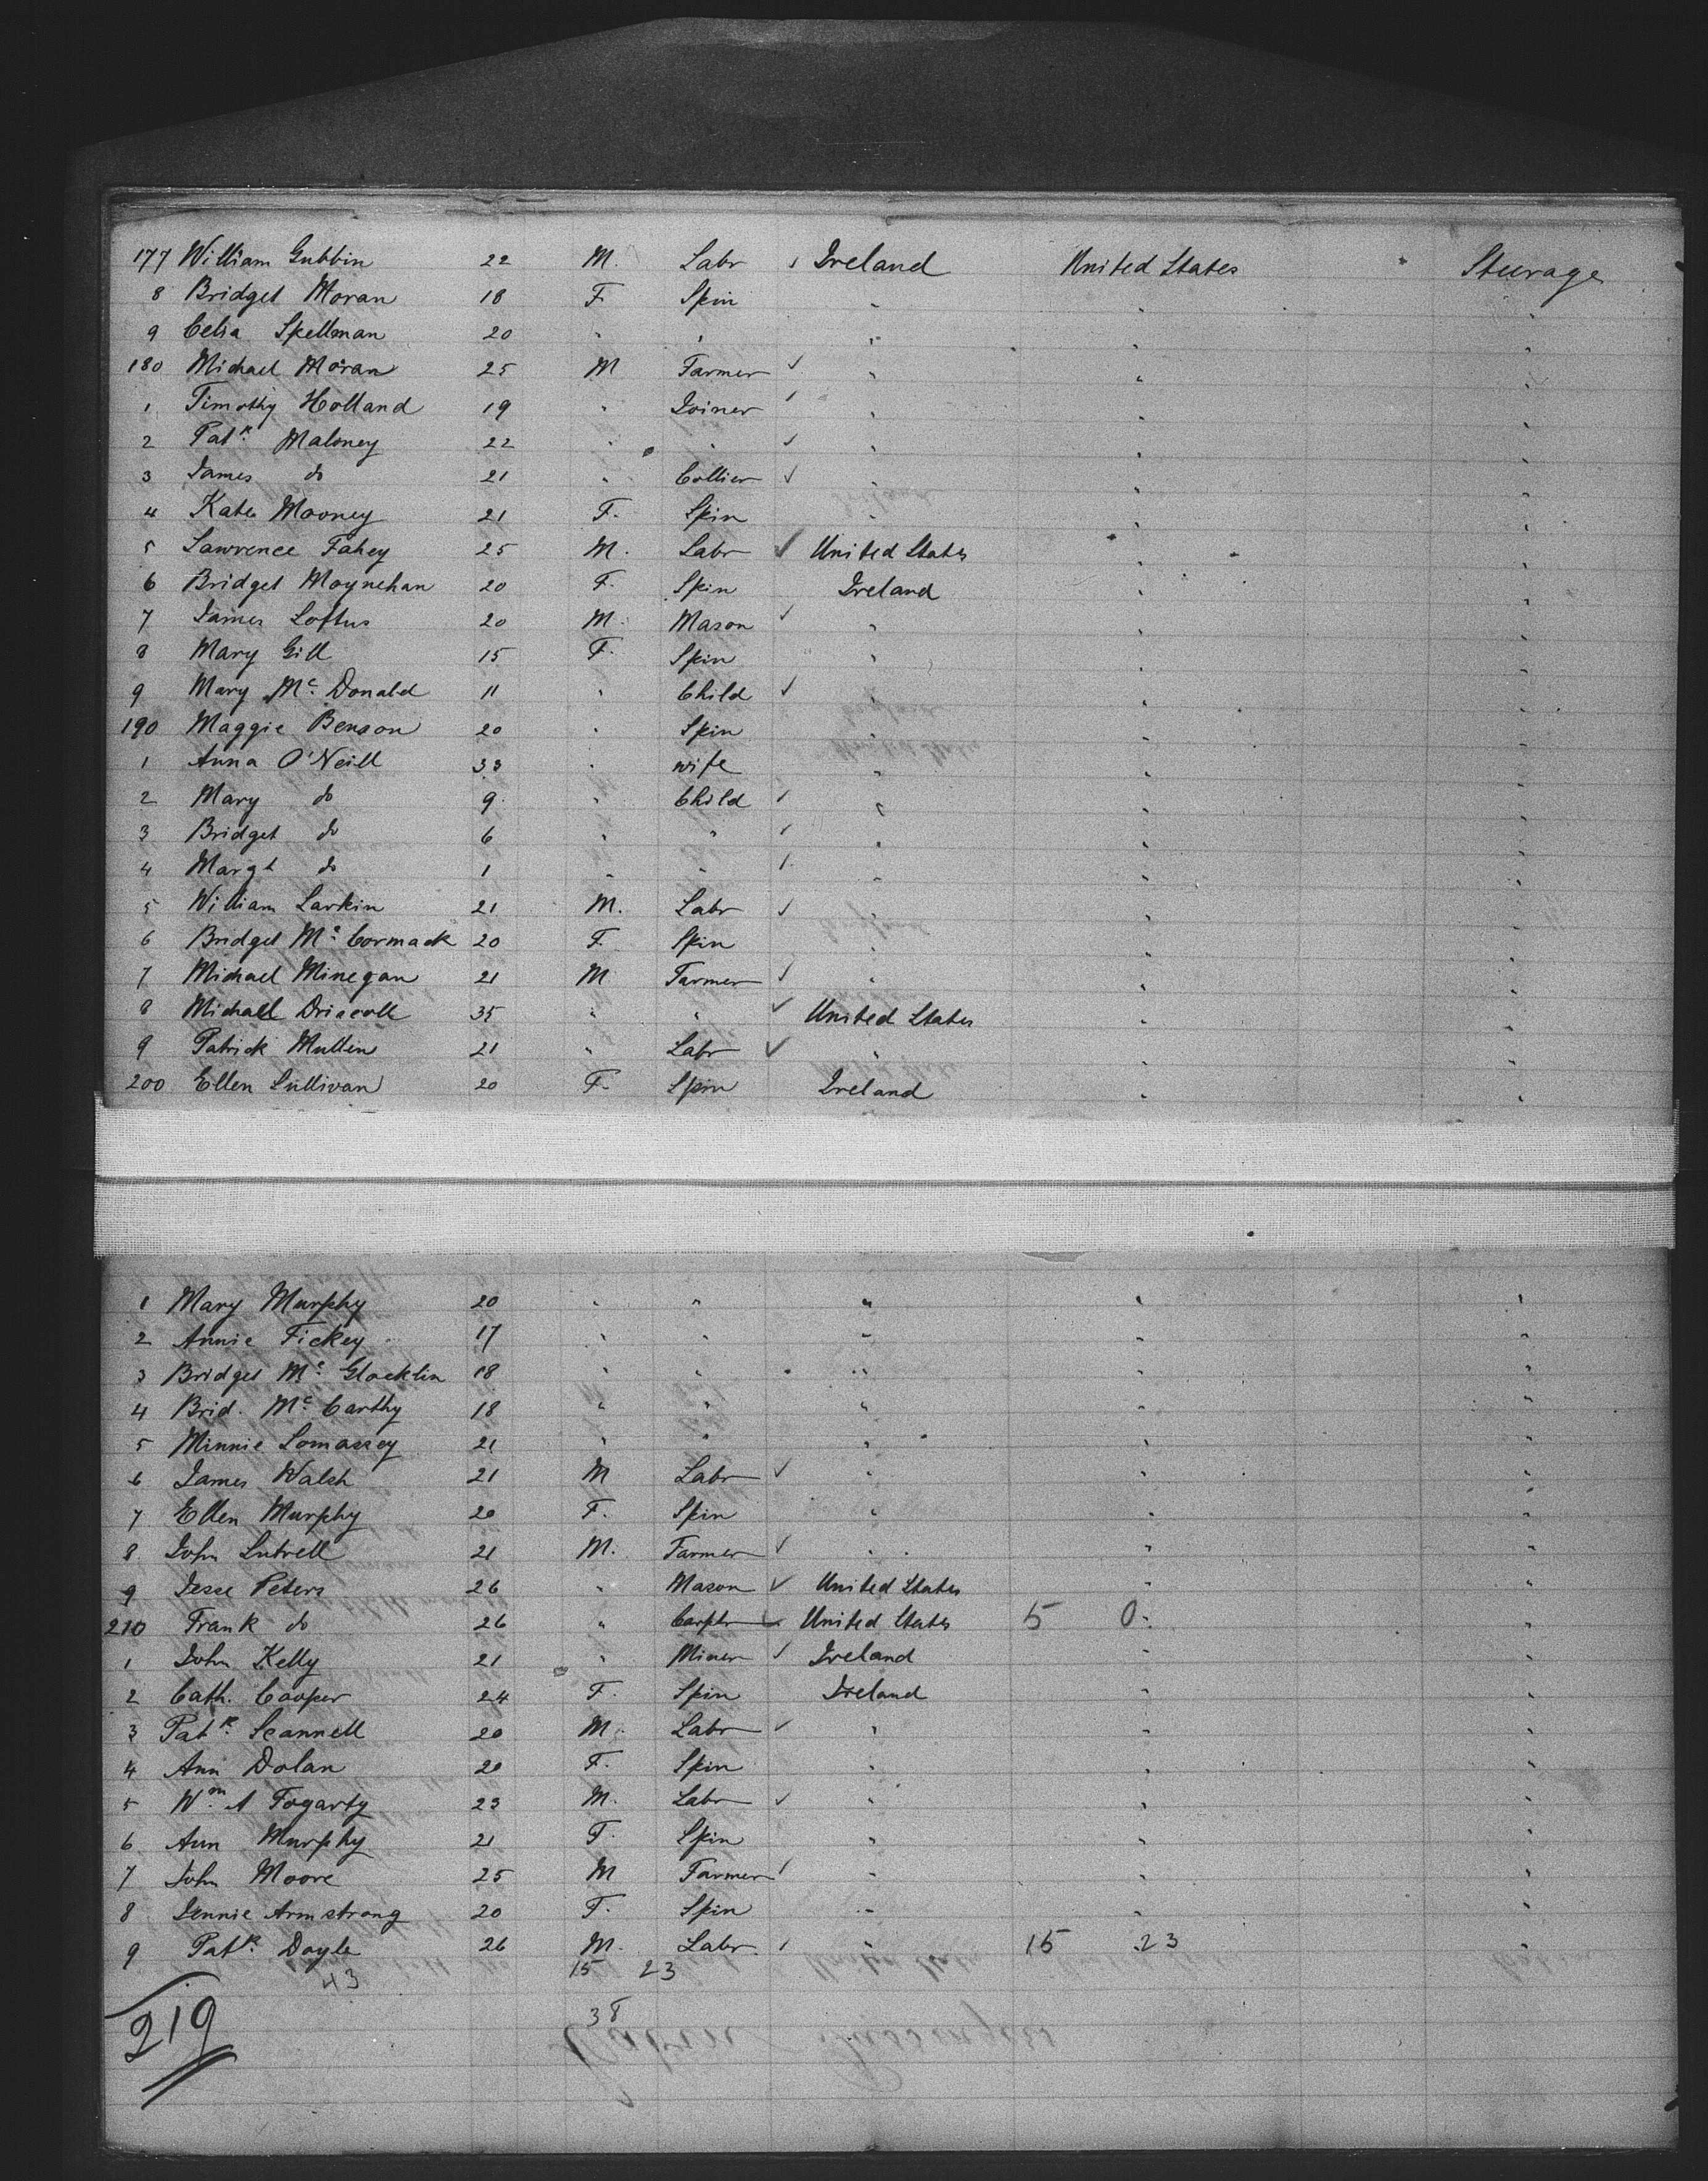 177 William Gubbin 22 M. Labr ✓ Ireland United States " Steerage
8 Bridget Moran 18 F. Spin " " "
9 Celia Spellman 20 " " " " "
180 Michael Moran 25 M Farmer ✓ " " "
1 Timothy Holland 19 " Joiner ✓ " " "
2 Patk. Maloney 22 " " ✓ " " "
3 James do 21 " Collier ✓ " " "
4 Kate Mooney 21 F. Spin " " "
5 Lawrence Fahey 25 M. Labr ✓ United States " "
6 Bridget Moynehan 20 F. Spin Ireland " "
7 James Loftus 20 M. Mason ✓ " " "
8 Mary Gill 15 F. Spin " " "
9 Mary Mc. Donald 11 " Child ✓ " " "
190 Maggie Benson 20 " Spin " " "
1 Anna O'Neill 33 " wife " " "
2 Mary do 9 " Child ✓ " " "
3 Bridget do 6 " " ✓ " " "
4 Margt do 1 " " ✓ " " "
5 William Larkin 21 M. Labr ✓ " " "
6 Bridget Mc. Cormack 20 F. Spin " " "
7 Michael Minegan 21 M Farmer ✓ " " "
8 Michael Driscoll 35 " " ✓ United States " "
9 Patrick Mullen 21 " Labr ✓ " " "
200 Ellen Sullivan 20 F. Spin Ireland " "
1 Mary Murphy 20 " " " " "
2 Annie Fickey 17 " " " " "
3 Bridget Mc. Glocklin 18 " " " " "
4 Brid. Mc. Carthy 18 " " " " "
5 Minnie Lomassey 21 " " " " "
6 James Walsh 21 M Labr ✓ " " "
7 Ellen Murphy 20 F. Spin " " "
8 John Lutrell 21 M. Farmer ✓ " " "
9 Jesse Peters 26 " Mason ✓ United States " "
210 Frank do 26 " Carptr ✓ United States 5 0 " "
1 John Kelly 21 " Miner ✓ Ireland " "
2 Cath. Cooper 24 F. Spin Ireland " "
3 Patk. Scannell 20 M. Labr ✓ " " "
4 Ann Dolan 20 F. Spin " " "
5 Wm. A Fogarty 23 M. Labr ✓ " " "
6 Ann Murphy 21 F. Spin " " "
7 John Moore 25 M Farmer ✓ " " "
8 Jennie Armstrong 20 F. Spin " " "
9 Patk. Doyle 26 M. Labr. ✓ " 15 23 "
43 15 23
38
219